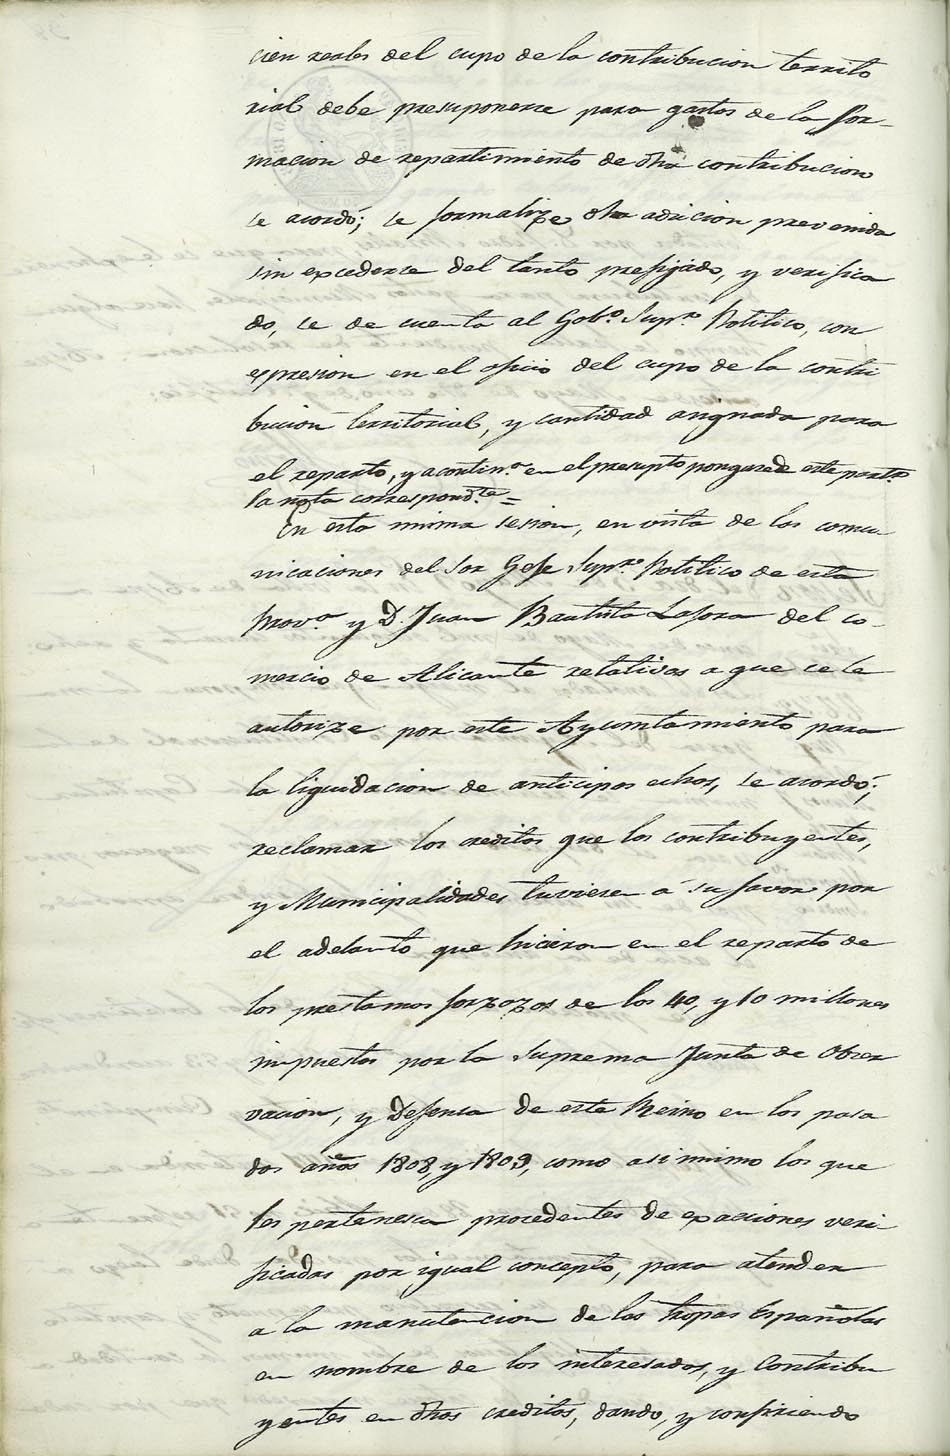 cien reales del cupo de la contribucion territo
rial debe presuponerse para gastos de la for-
macion de repartimiento de dha contribucion
se acordó; se formalize dha adicion prevenida
sin excederse del tanto prefijado, y verifica
do, se de cuenta al Gobº Suprº Politico, con
expresion en el oficio del cupo de la contri
bucion territorial, y cantidad asignada para
el reparto, y acontinn en el presupto pongase de este partr
la nota correspondte =
En esta misma sesion, en vista de las comu
nicaciones del Sor Gefe Suprº Politico de esta
Provª y D. Juan Bautista Lafora del co-
mercio de Alicante relativas a que se le
autorize por este Ayuntamiento para
la liquidacion de anticipos echos, se acordó;
reclamar los creditos que los contribuyentes,
y Municipalidades tuviesen á su favor por
el adelanto que hicieron en el reparto de
los prestamos forzozos de los 40, y 10 millones
impuestos por la Suprema Junta de Obser
vacion, y Defensa de este Reino en los pasa
dos años 1808, y 1809, como asi mimo los que
les pertenesca procedentes de exacciones veri
ficadas por igual concepto, para atender
a la manutencion de las tropas Españolas
en nombre de los interesados, y Contribu
yentes en dhos creditos, dando, y confiriendo